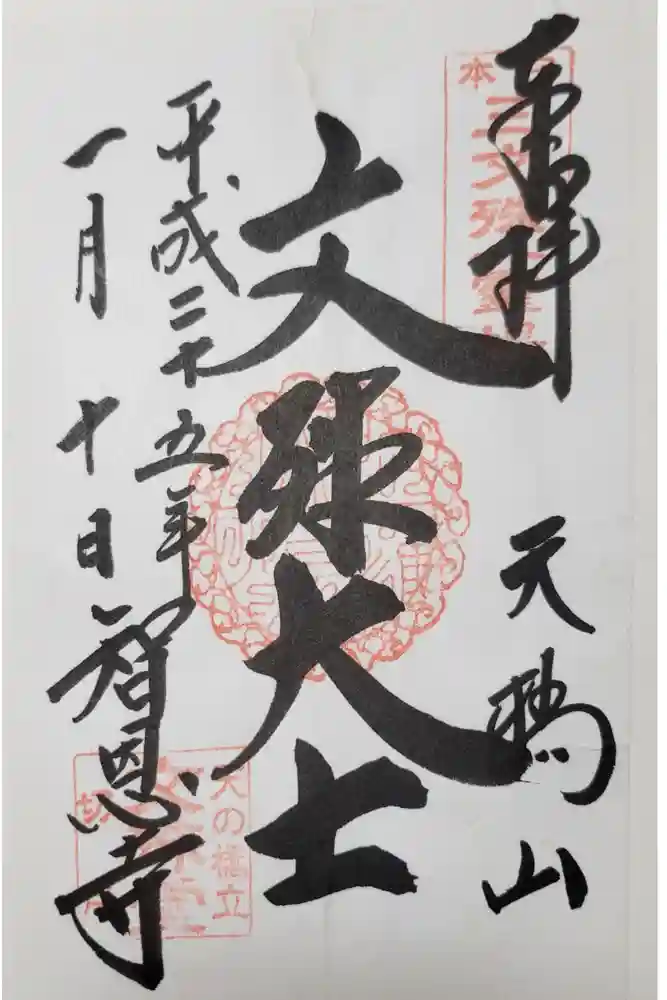 奉拝
天橋山
文殊大士
平成二十五年
一月十日
智恩寺
本三文殊
天の橋立